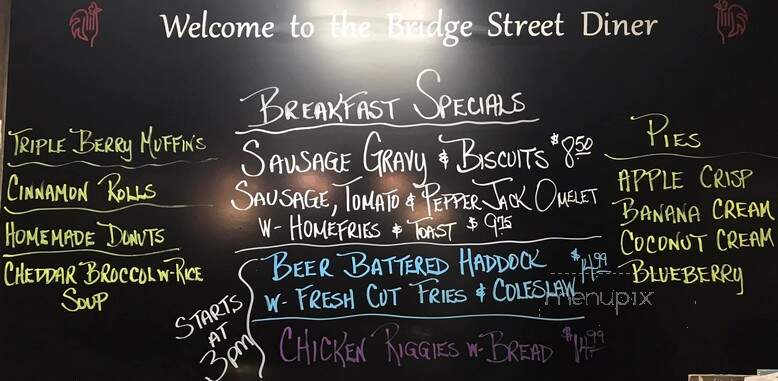 Welcome to the Bridge Street Diner
TRIPLE BERRY MUFFINS
CINNAMON ROLLS
HOMEMADE DONUTS
CHEDDAR BROCCOL W-RICE
SOUP
BREAKFAST SPECIALS
SAUSAGE GRAVY & BISCUITS $8.50
SAUSAGE, TOMATO & PEPPER JACK OMELET
W- HOMEFRIES & TOAST $9.75
STARTS
AT
3PM
BEER BATTERED HADDOCK $14.99
W- FRESH CUT FRIES & COLESLAW
CHICKEN RIGGIES W- BREAD $14.99
PIES
APPLE CRISP
BANANA CREAM
COCONUT CREAM
BLUEBERRY
menupix